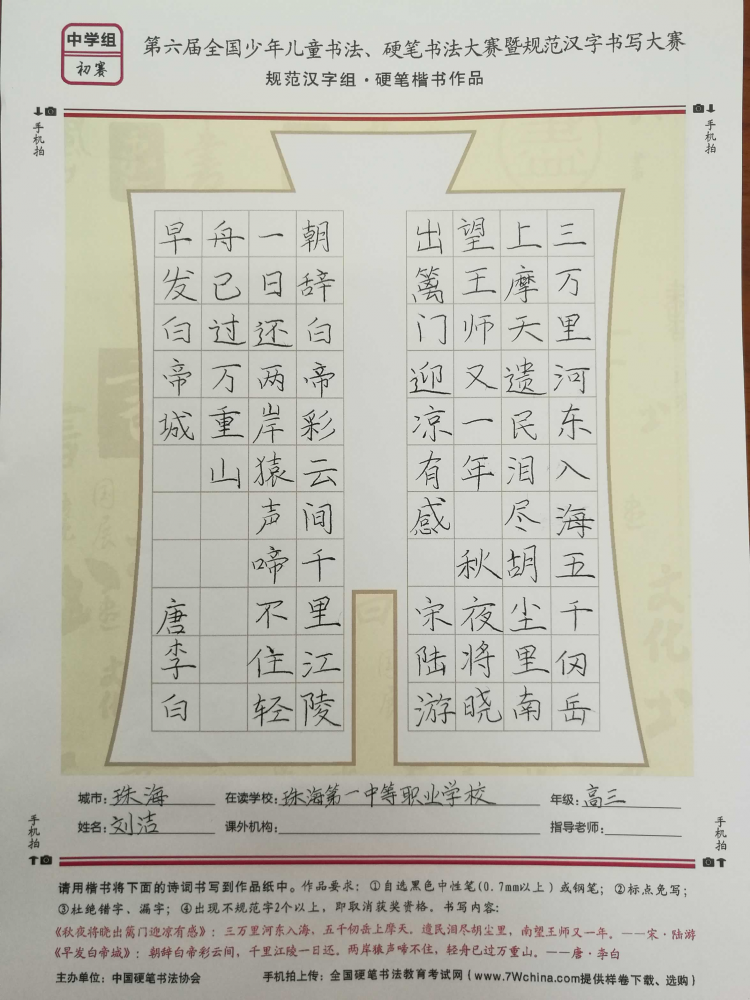 中学组
初赛
第六届全国少年儿童书法、硬笔书法大赛暨规范汉字书写大赛
规范汉字组·硬笔楷书作品
手机拍
手机拍
三万里河东入海五千仞岳
上摩天遗民泪尽胡尘里南
望王师又一年 秋夜将晓
出篱门迎凉有感 宋陆游
朝辞白帝彩云间千里江陵
一日还两岸猿声啼不住轻
舟已过万重山
早发白帝城 唐李白
城市：珠海 在读学校：珠海第一中等职业学校 年级：高三
姓名：刘洁 课外机构： 指导老师：
手机拍
手机拍
请用楷书将下面的诗词书写到作品纸中。作品要求：①自选黑色中性笔(0.7mm以上）或钢笔；②标点免写；
③杜绝错字、漏字；④出现不规范字2个以上，即取消获奖资格。书写内容：
《秋夜将晓出篱门迎凉有感》：三万里河东入海，五千仞岳上摩天。遗民泪尽胡尘里，南望王师又一年。——宋·陆游
《早发白帝城》：朝辞白帝彩云间，千里江陵一日还。两岸猿声啼不住，轻舟已过万重山。——唐·李白
主办单位：中国硬笔书法协会 手机拍上传：全国硬笔书法教育考试网（www.7Wchina.com提供样卷下载、选购）